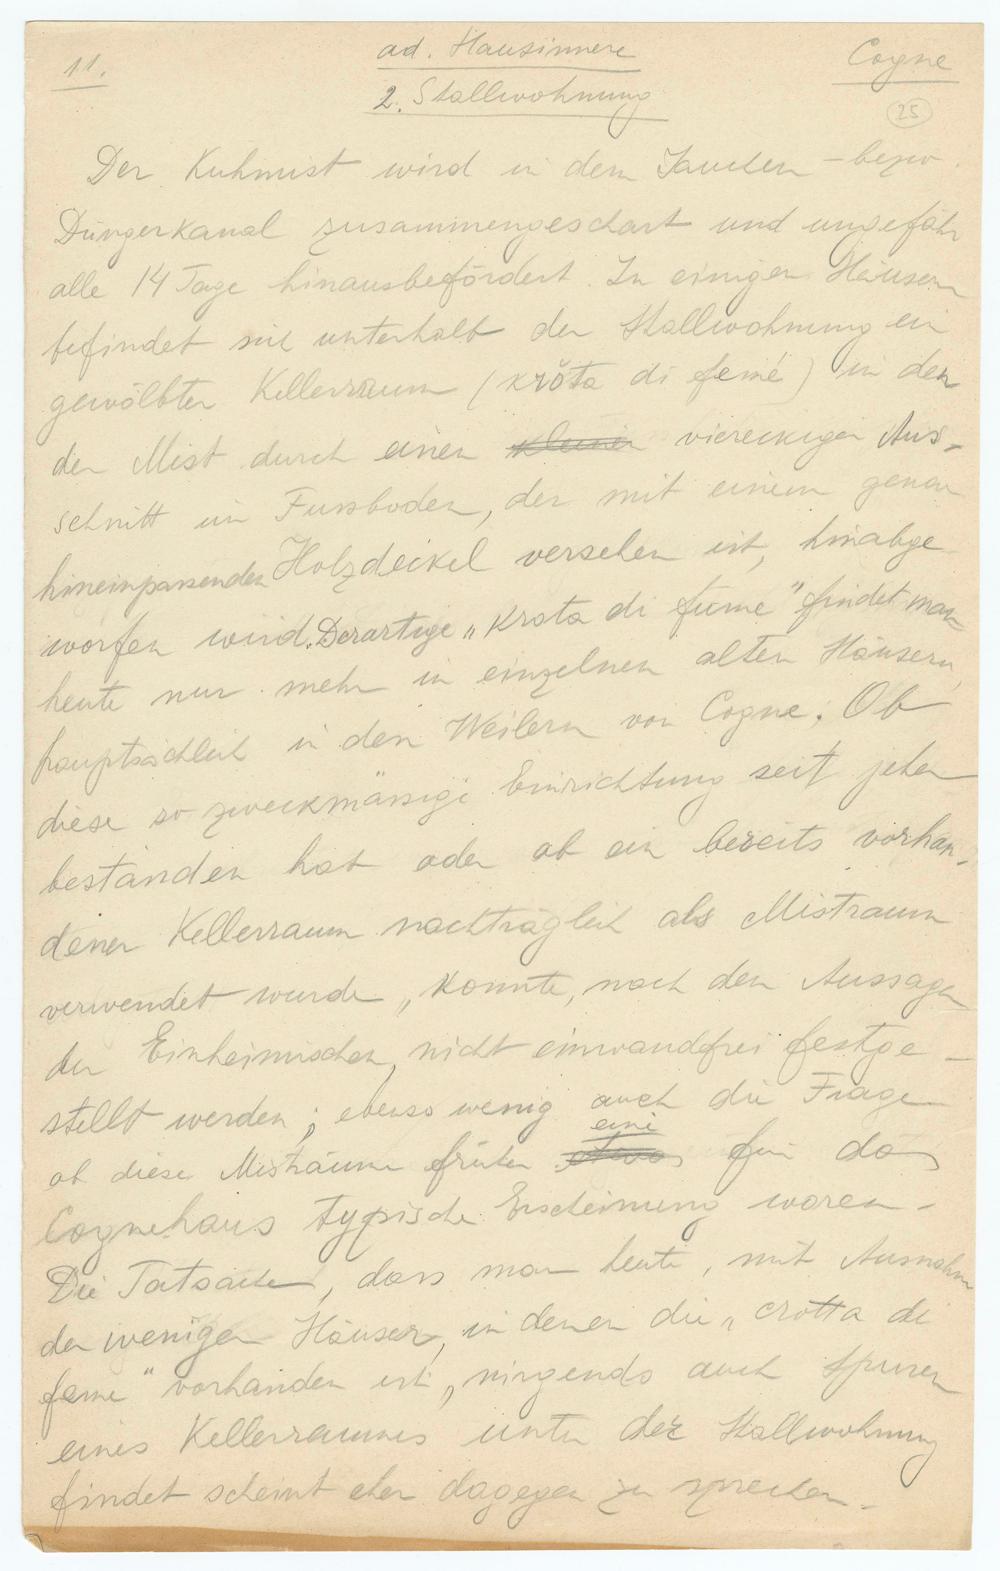 11.
ad. Hausinnere
Cogne
2. Stallwohnung
25
Der Kuhmist wird in dem Jauchen - bezw.
Düngerkanal zusammengeschart und ungefähr
alle 14 Tage hinausbefördert. In einigen Häusern
befindet sich unterhalb der Stallwohnung ein
gewölbter Kellerraum (krŏta di femé) in den
der Mist durch einen kleinen viereckigen Aus-
schnitt im Fussboden, der mit einem genau
hineinpassenden Holzdeckel versehen ist, hinabge
worfen wird. Derartige „Krota di fume" findet man
heute nur mehr in einzelnen alten Häusern,
hauptsächlich in den Weilern von Cogne. Ob
diese so zweckmässige Einrichtung seit jeher
bestanden hat oder ob ein bereits vorhan-
dener Kellerraum nachträglich als Mistraum
verwendet wurde, konnte, nach den Aussagen
der Einheimischen, nicht einwandfrei festge-
stellt werden; ebenso wenig auch die Frage
ob diese Misträume früher eine für das
Cognehaus typische Erscheinung waren.
Die Tatsache, dass man heute, mit Ausnahme
der wenigen Häuser, in denen die „crotta di
feme" vorhanden ist, nirgends auch Spuren
eines Kellerraumes unter der Stallwohnung
findet scheint eher dagegen zu sprechen.